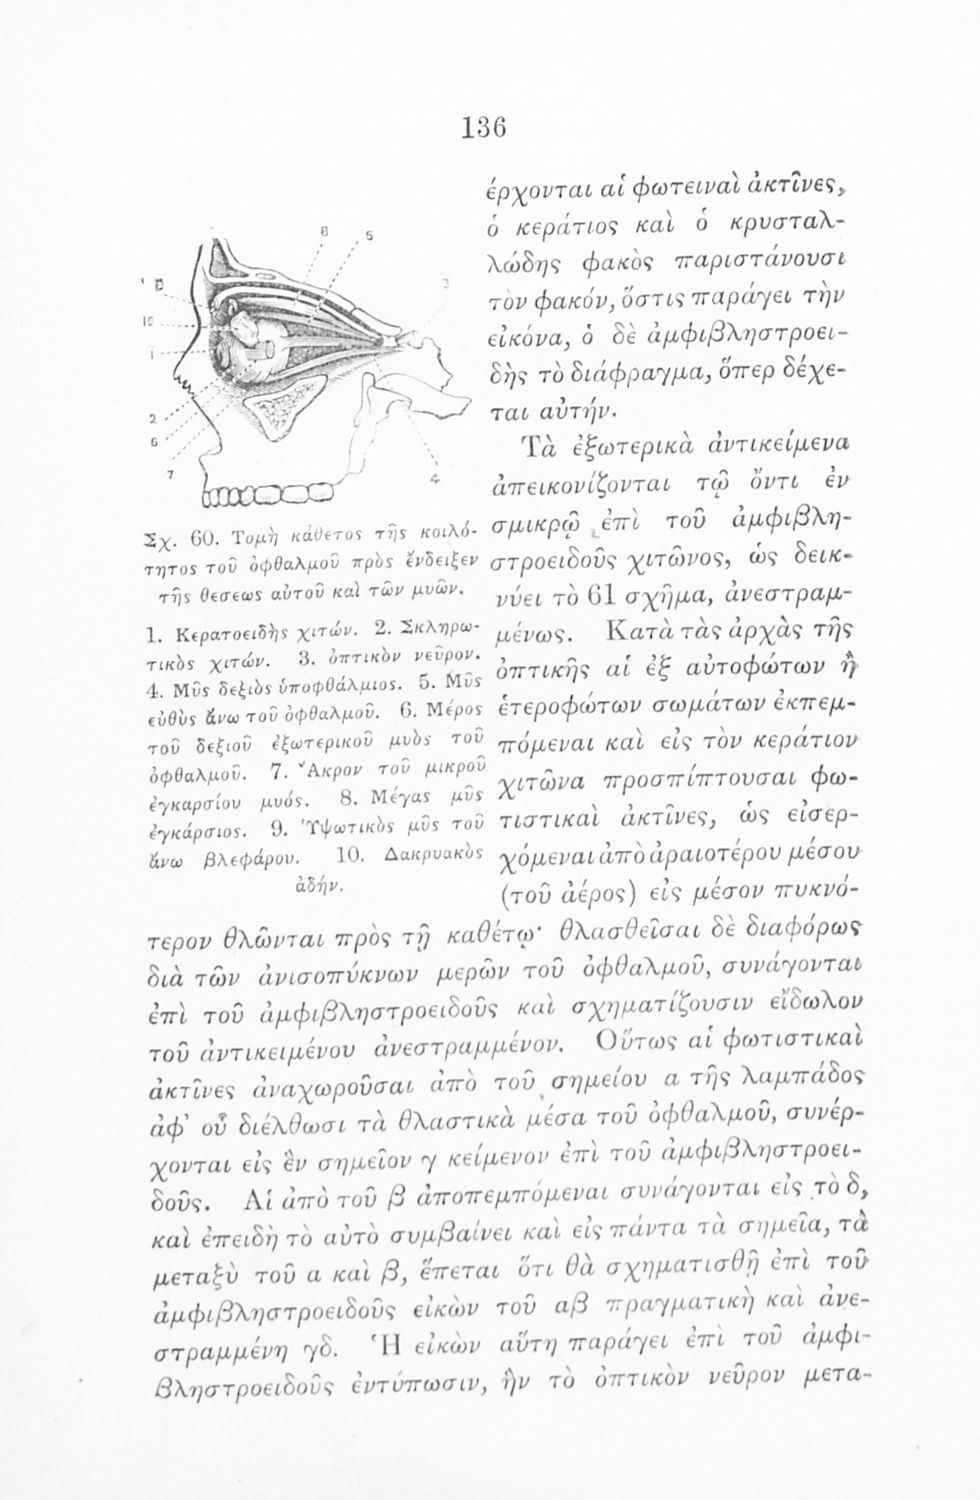 136
έρχονται αἱ φωτειναὶ ἀκτῖνες,
ὁ κεράτιος καὶ ὁ κρυσταλ-
λώδης φακὸς παριστάνουσι
τὸν φακόν, ὅστις παράγει τὴν
εἰκόνα, ὁ δὲ ἀμφιβληστροει-
δὴς τὸ διάφραγμα, ὅπερ δέχε-
ται αὐτήν.
Τὰ ἐξωτερικὰ ἀντικείμενα
ἀπεικονίζονται τῷ ὄντι ἐν
σμικρῷ ἐπὶ τοῦ ἀμφιβλη-
στροειδοῦς χιτῶνος, ὡς δεικ-
νύει τὸ 61 σχῆμα, ἀνεστραμ-
μένως. Κατὰ τὰς ἀρχὰς τῆς
ὀπτικῆς αἱ ἐξ αὐτοφώτων ἢ
ἑτεροφώτων σωμάτων ἐκπεμ-
πόμεναι καὶ εἰς τὸν κεράτιον
χιτῶνα προσπίπτουσαι φω-
τιστικαὶ ἀκτῖνες, ὡς εἰσερ-
χόμεναι ἀπὸ ἀραιοτέρου μέσου
(τοῦ ἀέρος) εἰς μέσον πυκνό-
8 5
3
9
10
1
2
6
7
4
Σχ. 60. Τομὴ κάθετος τῆς κοιλό-
τητος τοῦ ὀφθαλμοῦ πρὸς ἔνδειξεν
τῆς θεσεως αὐτοῦ καὶ τῶν μυῶν.
1. Κερατοειδὴς χιτών. 2. Σκληρω-
τικὸς χιτών. 3. ὀπτικὸν νεῦρον.
4. Μῦς δεξιὸς ὑποφθάλμιος. 5. Μῦς
εὐθὺς ἄνω τοῦ ὀφθαλμοῦ. 6. Μέρος
τοῦ δεξιοῦ ἐξωτερικοῦ μυὸς τοῦ
ὀφθαλμοῦ. 7. Ἄκρον τοῦ μικροῦ
ἐγκαρσίου μυός. 8. Μέγας μῦς
ἐγκάρσιος. 9. Ὑψωτικὸς μῦς τοῦ
ἄνω βλεφάρου. 10. Δακρυακὸς
ἀδήν.
τερον θλῶνται πρὸς τῇ καθέτῳ· θλασθεῖσαι δὲ διαφόρως
διὰ τῶν ἀνισοπύκνων μερῶν τοῦ ὀφθαλμοῦ, συνάγονται
ἐπὶ τοῦ ἀμφιβληστροειδοῦς καὶ σχηματίζουσιν εἴδωλον
τοῦ ἀντικειμένου ἀνεστραμμένον. Οὕτως αἱ φωτιστικαὶ
ἀκτῖνες ἀναχωροῦσαι ἀπὸ τοῦ σημείου α τῆς λαμπάδος
ἀφ' οὗ διέλθωσι τὰ θλαστικὰ μέσα τοῦ ὀφθαλμοῦ, συνέρ-
χονται εἰς ἓν σημεῖον γ κείμενον ἐπὶ τοῦ ἀμφιβληστροει-
δοῦς. Αἱ ἀπὸ τοῦ β ἀποπεμπόμεναι συνάγονται εἰς τὸ δ,
καὶ ἐπειδὴ τὸ αὐτὸ συμβαίνει καὶ εἰς πάντα τὰ σημεῖα, τὰ
μεταξὺ τοῦ α καὶ β, ἕπεται ὅτι θὰ σχηματισθῇ ἐπὶ τοῦ
ἀμφιβληστροειδοῦς εἰκὼν τοῦ αβ πραγματικὴ καὶ ἀνε-
στραμμένη γδ. Ἡ εἰκὼν αὕτη παράγει ἐπὶ τοῦ ἀμφι-
βληστροειδοῦς ἐντύπωσιν, ἣν τὸ ὀπτικὸν νεῦρον μετα-